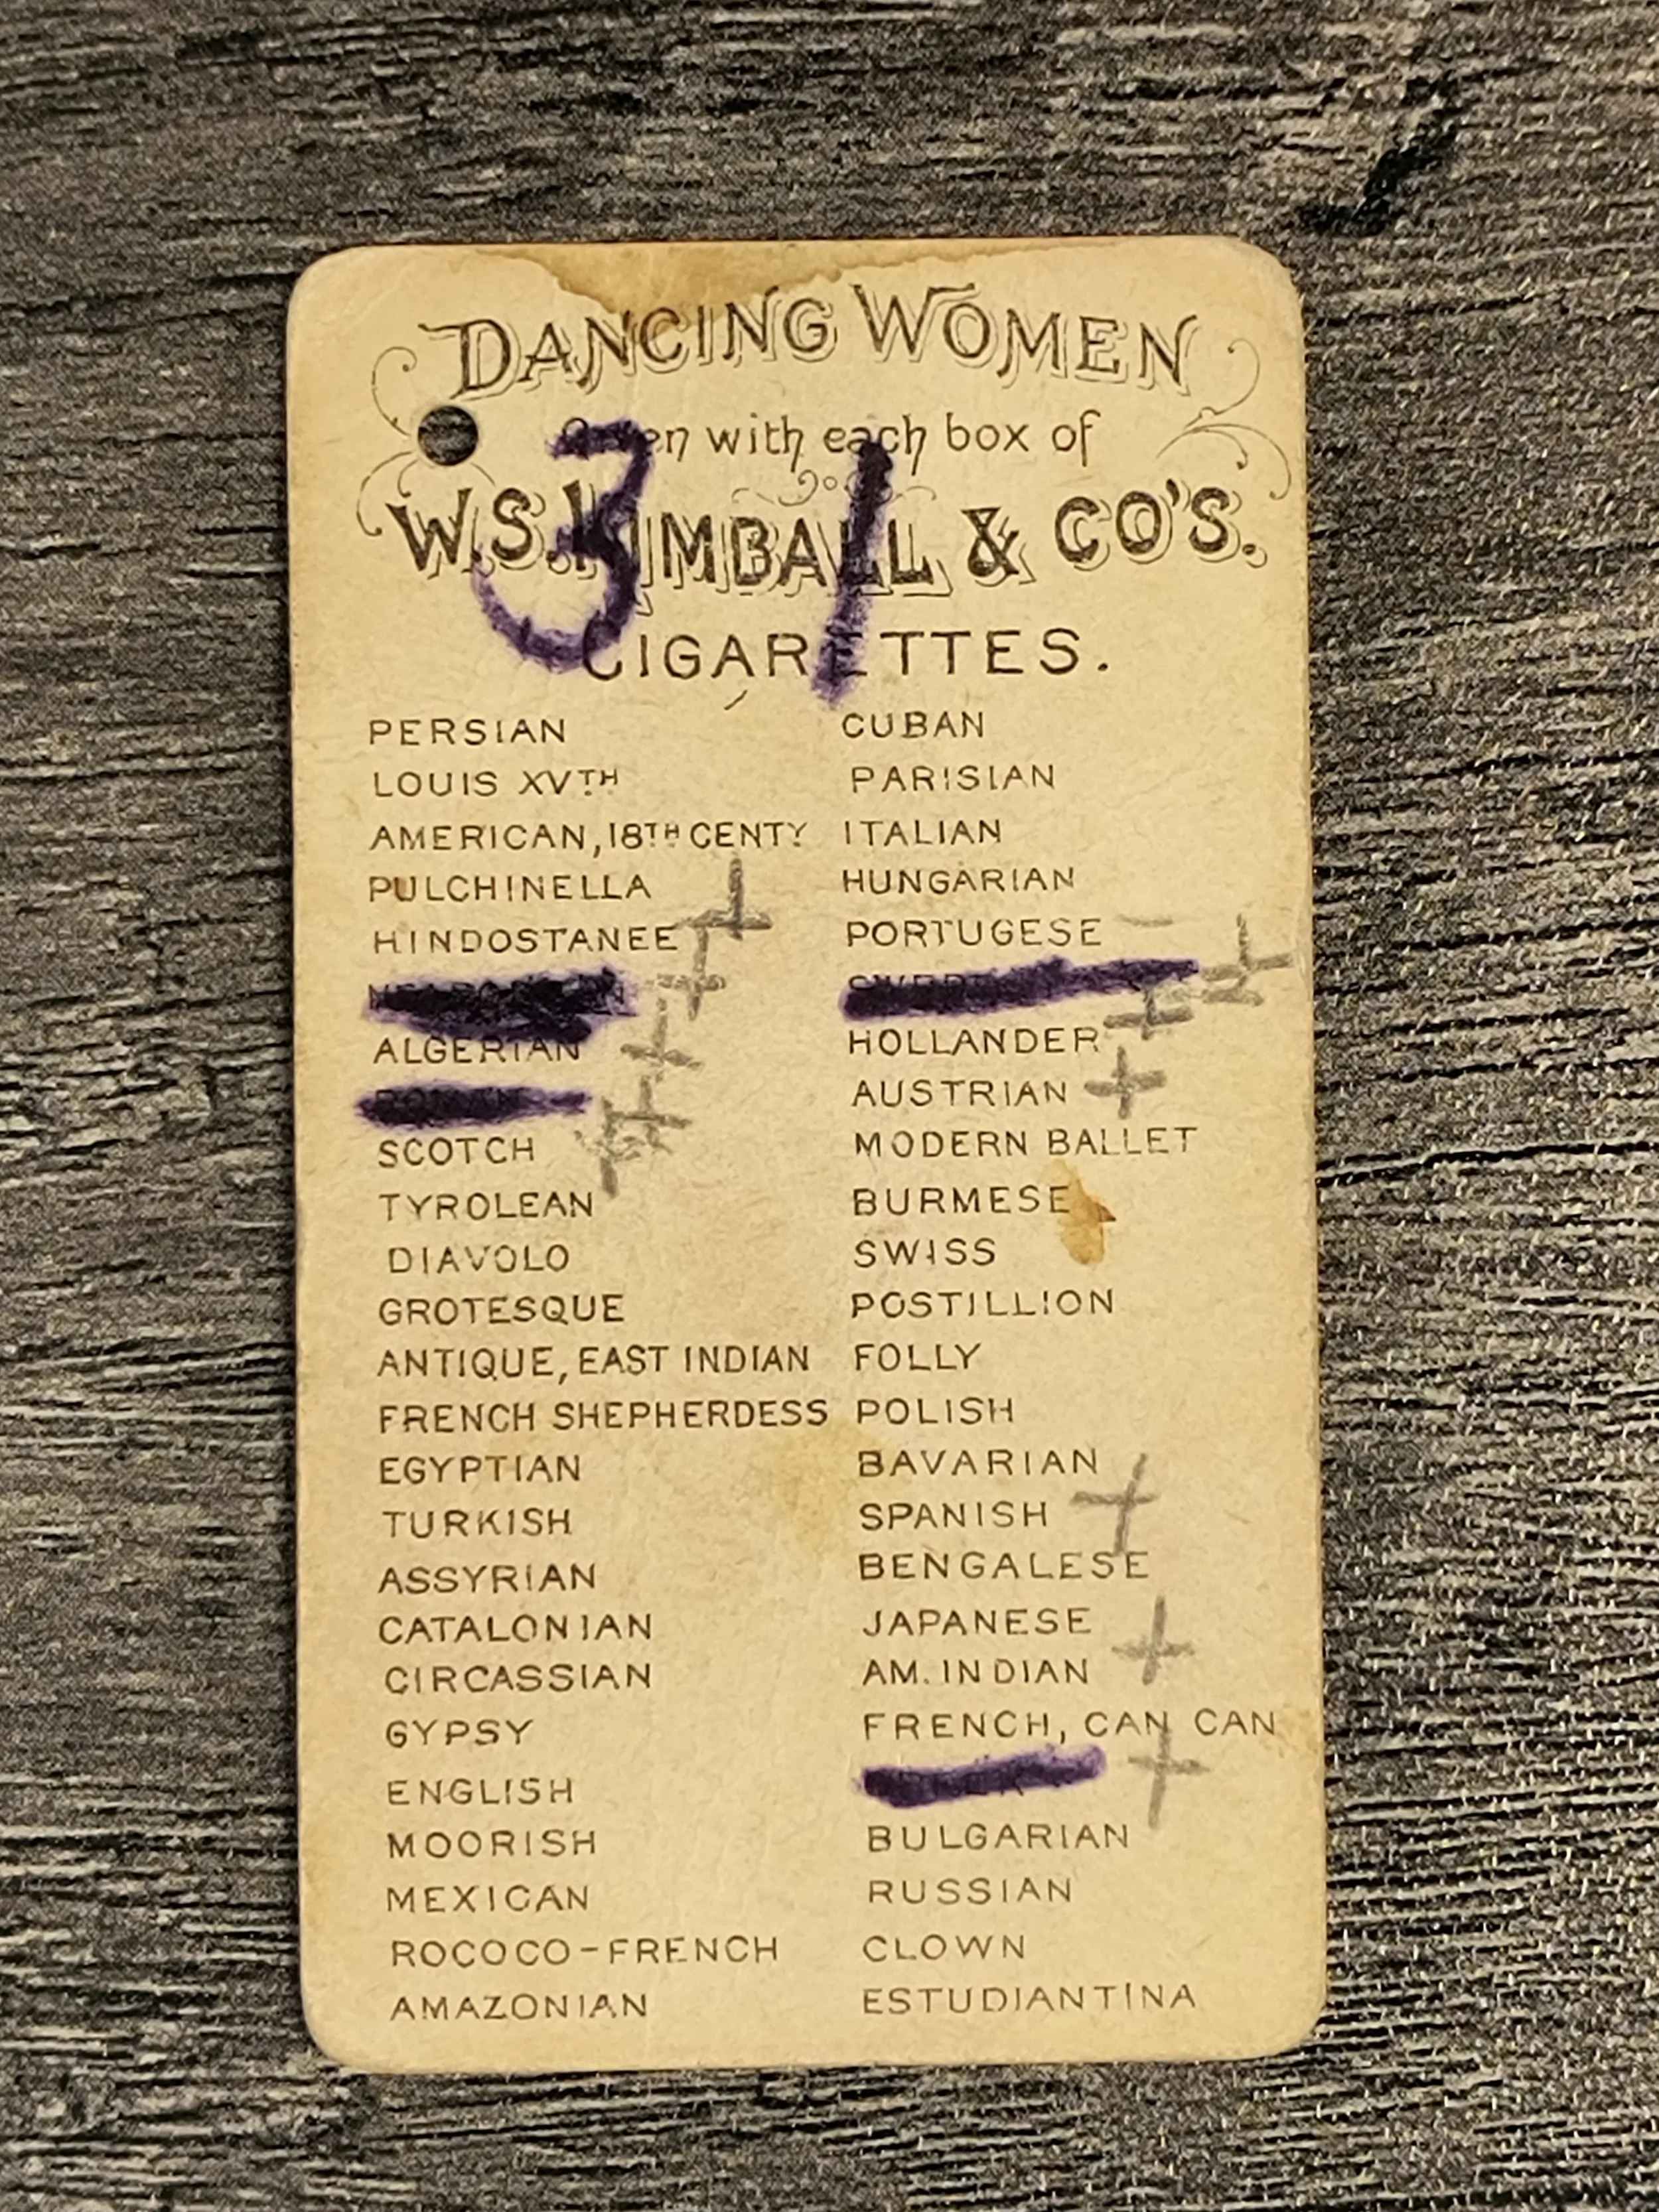 DANCING WOMEN
with each box of
W.S. KIMBALL & CO'S.
CIGARETTES.
31
PERSIAN
LOUIS XVTH
AMERICAN, 18TH CENTY
PULCHINELLA
HINDOSTANEE
ALGERIAN
SCOTCH
TYROLEAN
DIAVOLO
GROTESQUE
ANTIQUE, EAST INDIAN
FRENCH SHEPHERDESS
EGYPTIAN
TURKISH
ASSYRIAN
CATALONIAN
CIRCASSIAN
GYPSY
ENGLISH
MOORISH
MEXICAN
ROCOCO-FRENCH
AMAZONIAN
CUBAN
PARISIAN
ITALIAN
HUNGARIAN
PORTUGESE
HOLLANDER
AUSTRIAN
MODERN BALLET
BURMESE
SWISS
POSTILLION
FOLLY
POLISH
BAVARIAN
SPANISH
BENGALESE
JAPANESE
AM. INDIAN
FRENCH, CAN CAN
BULGARIAN
RUSSIAN
CLOWN
ESTUDIANTINA